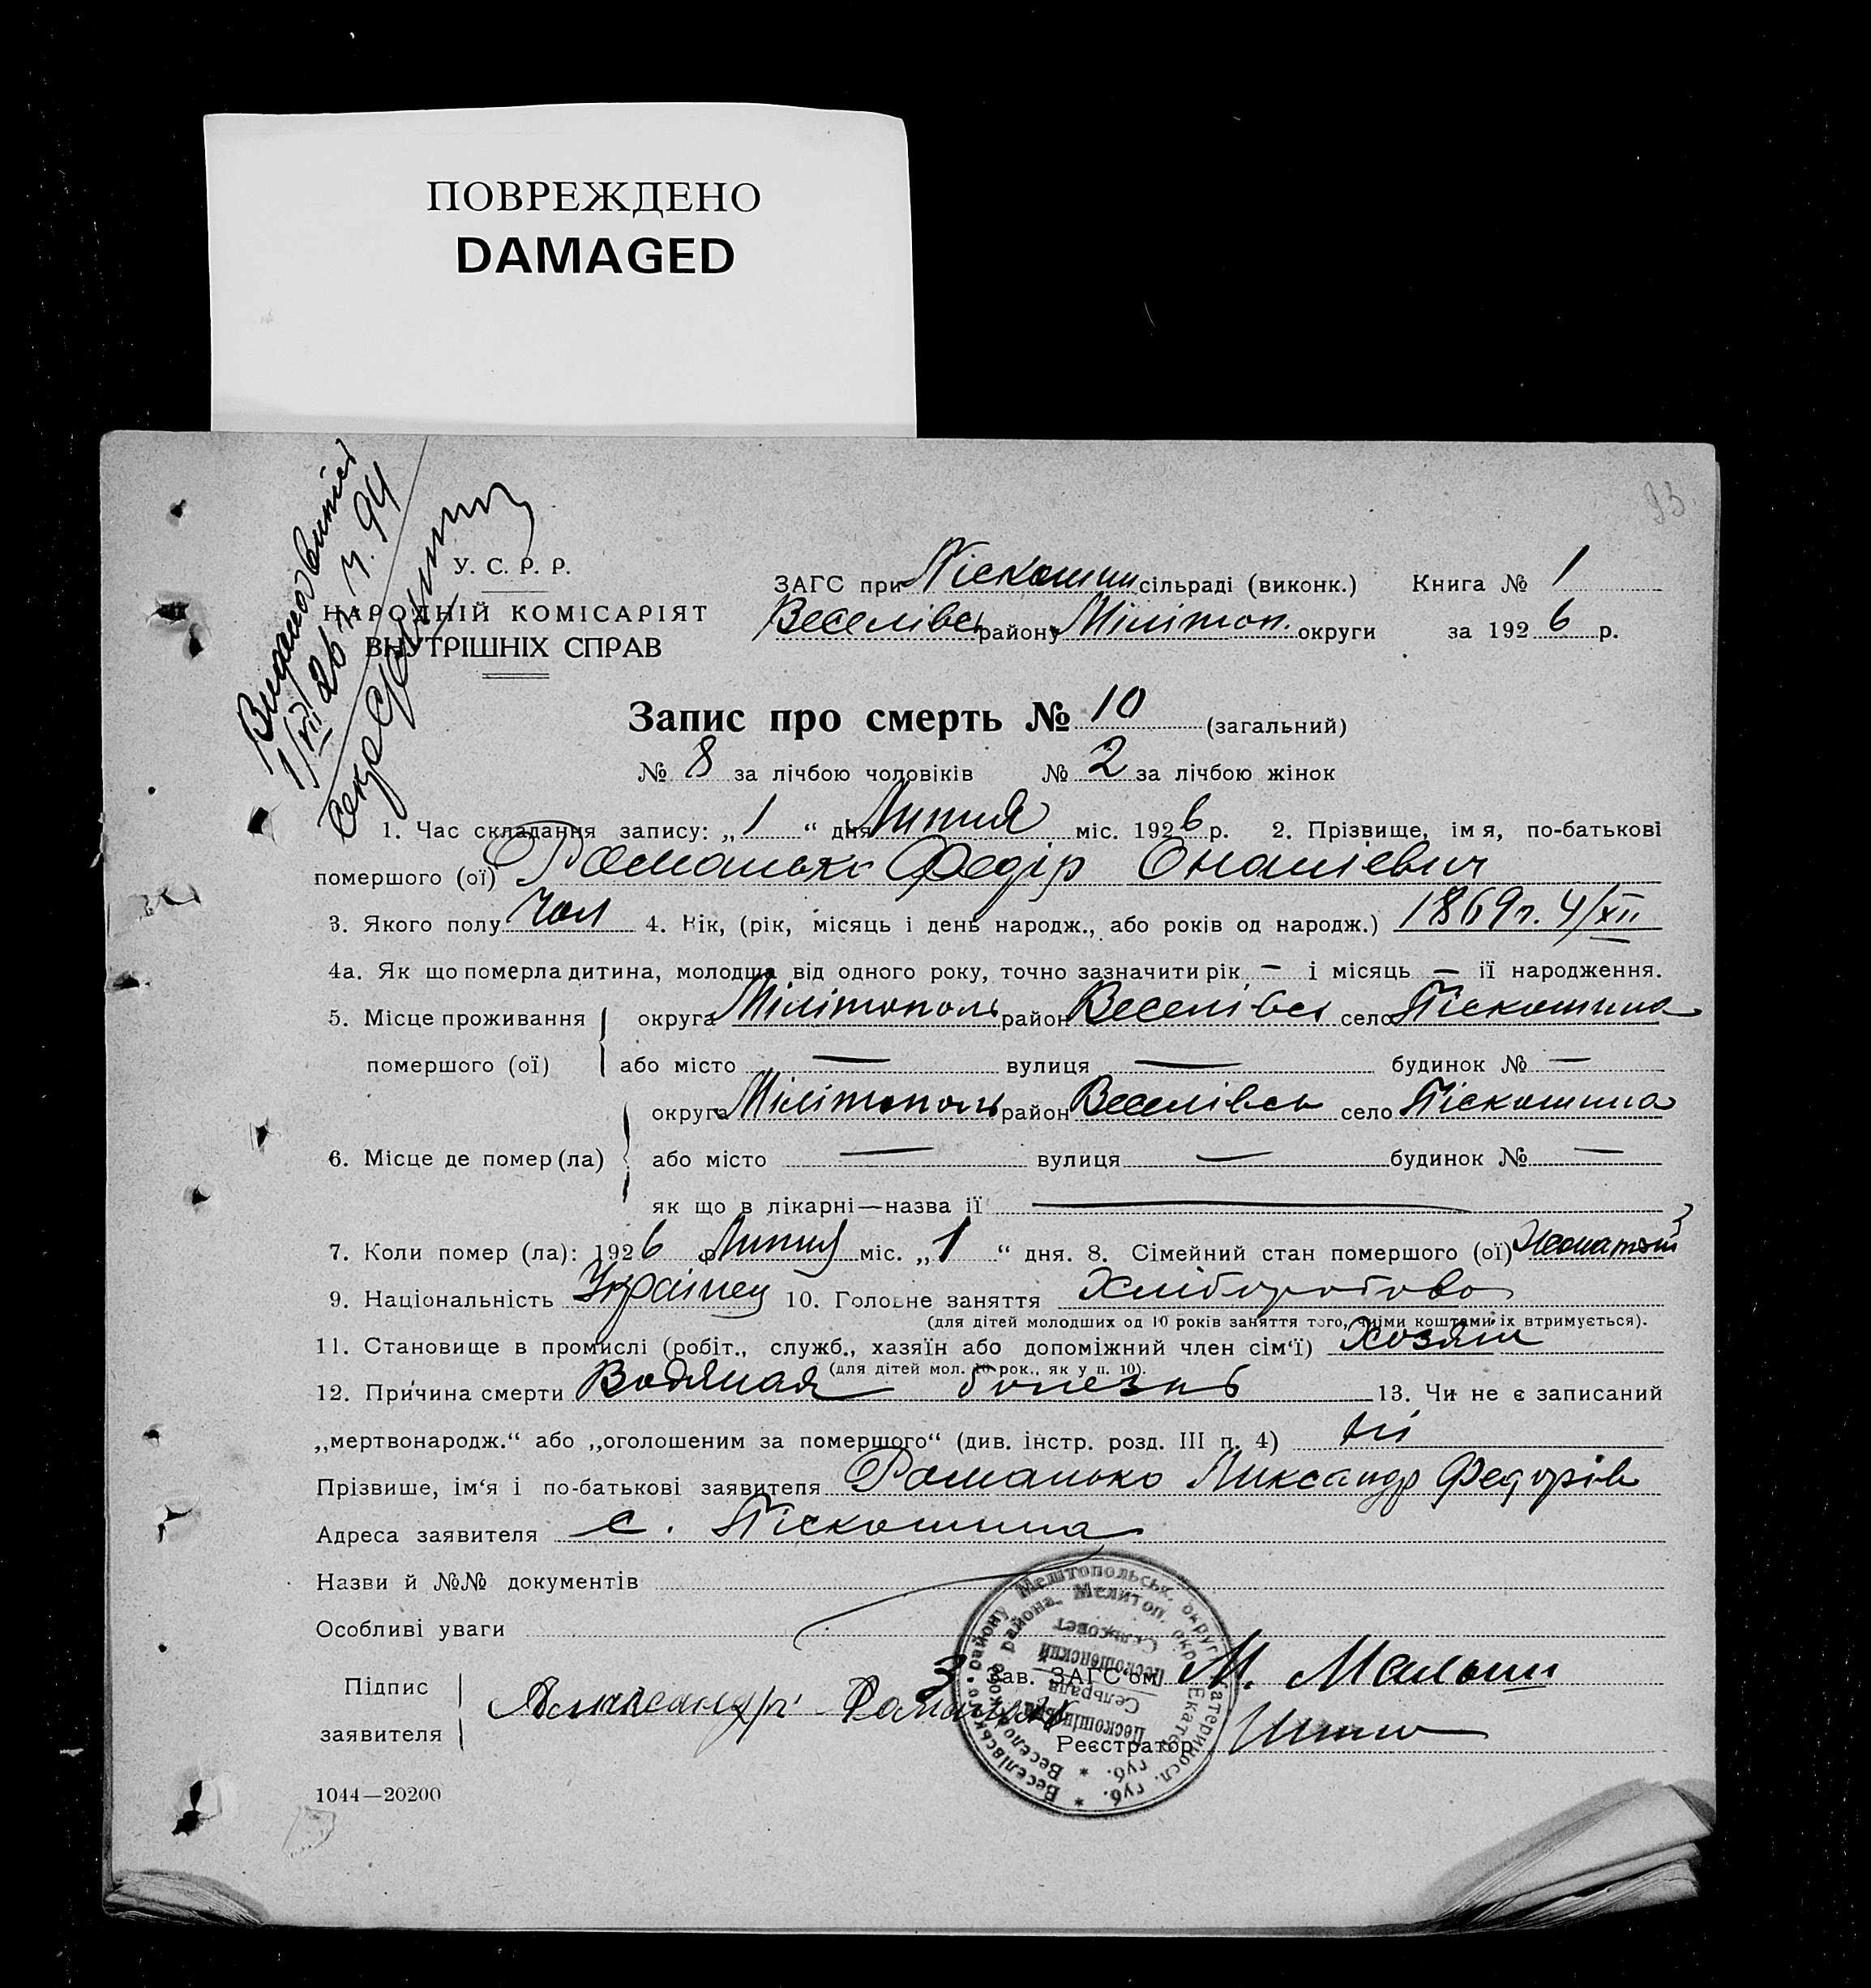 ПОВРЕЖДЕНО
DAMAGED
93
Видана випис
1/VII 26 р. ч. 94
У. С. Р. Р.
НАРОДНІЙ КОМІСАРІЯТ
ВНУТРІШНІХ СПРАВ
ЗАГС при Піскошин сільраді (виконк.) Книга № 1
Веселівськ району Мілітоп. округи за 1926 р.
Запис про смерть № 10 (загальний)
№ 8 за лічбою чоловіків № 2 за лічбою жінок
1. Час складання запису: „ 1 “ дня Липня міс. 1926 р. 2. Прізвище, імя, по-батькові
помершого (ої) Романько Федір Онанієвич
3. Якого полу чол 4. Вік, (рік, місяць і день народж., або років од народж.) 1869 г. 4/XII
4а. Як що померла дитина, молодша від одного року, точно зазначити рік — і місяць — ії народження.
5. Місце проживання помершого (ої) округа Мілітополь район Веселівськ село Піскошина
або місто — вулиця — будинок № —
6. Місце де помер (ла) округа Мілітополь район Веселівськ село Піскошина
або місто — вулиця — будинок № —
як що в лікарні—назва ії —
7. Коли помер (ла): 1926 р. Липня міс. „ 1 “ дня. 8. Сімейний стан помершого (ої)
9. Національність Українец 10. Головне заняття Хліборобство
(для дітей молодших од 10 років заняття того, чиіми коштами іх втримується).
11. Становище в промислі (робіт., служб., хазяїн або допоміжний член сім‘ї) Хозяин
(для дітей мол. 10 рок., як у п. 10).
12. Причина смерти Водяная болезнь 13. Чи не є записаний
„мертвонародж.“ або „оголошеним за помершого“ (див. інстр. розд. III п. 4) Ні
Прізвище, ім‘я і по-батькові заявителя Романько Ликсандр Федорів
Адреса заявителя с. Піскошина
Назви й №№ документів
Особливі уваги
Підпис заявителя Александр Романько
Зав. ЗАГС‘ом М. Малыш
Реєстратор
Веселівського району Мелітопольськ. округи Катериносл. губ.
Веселовского района, Мелитоп. окр. Екатер. губ.
Пескошінська Сельрада
Пескошенский Сельсовет
1044—20200